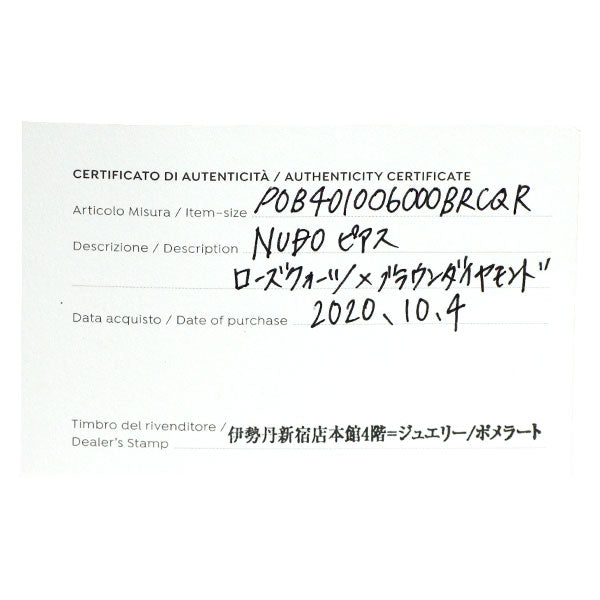 CERTIFICATO DI AUTENTICITÀ / AUTHENTICITY CERTIFICATE
Articolo Misura / Item-size POB401006000BRCQR
Descrizione / Description NUDO ピアス
ローズクォーツ×ブラウンダイヤモンド
Data acquisto / Date of purchase 2020、10、4
Timbro del rivenditore /
Dealer's Stamp 伊勢丹新宿店本館4階=ジュエリー/ポメラート